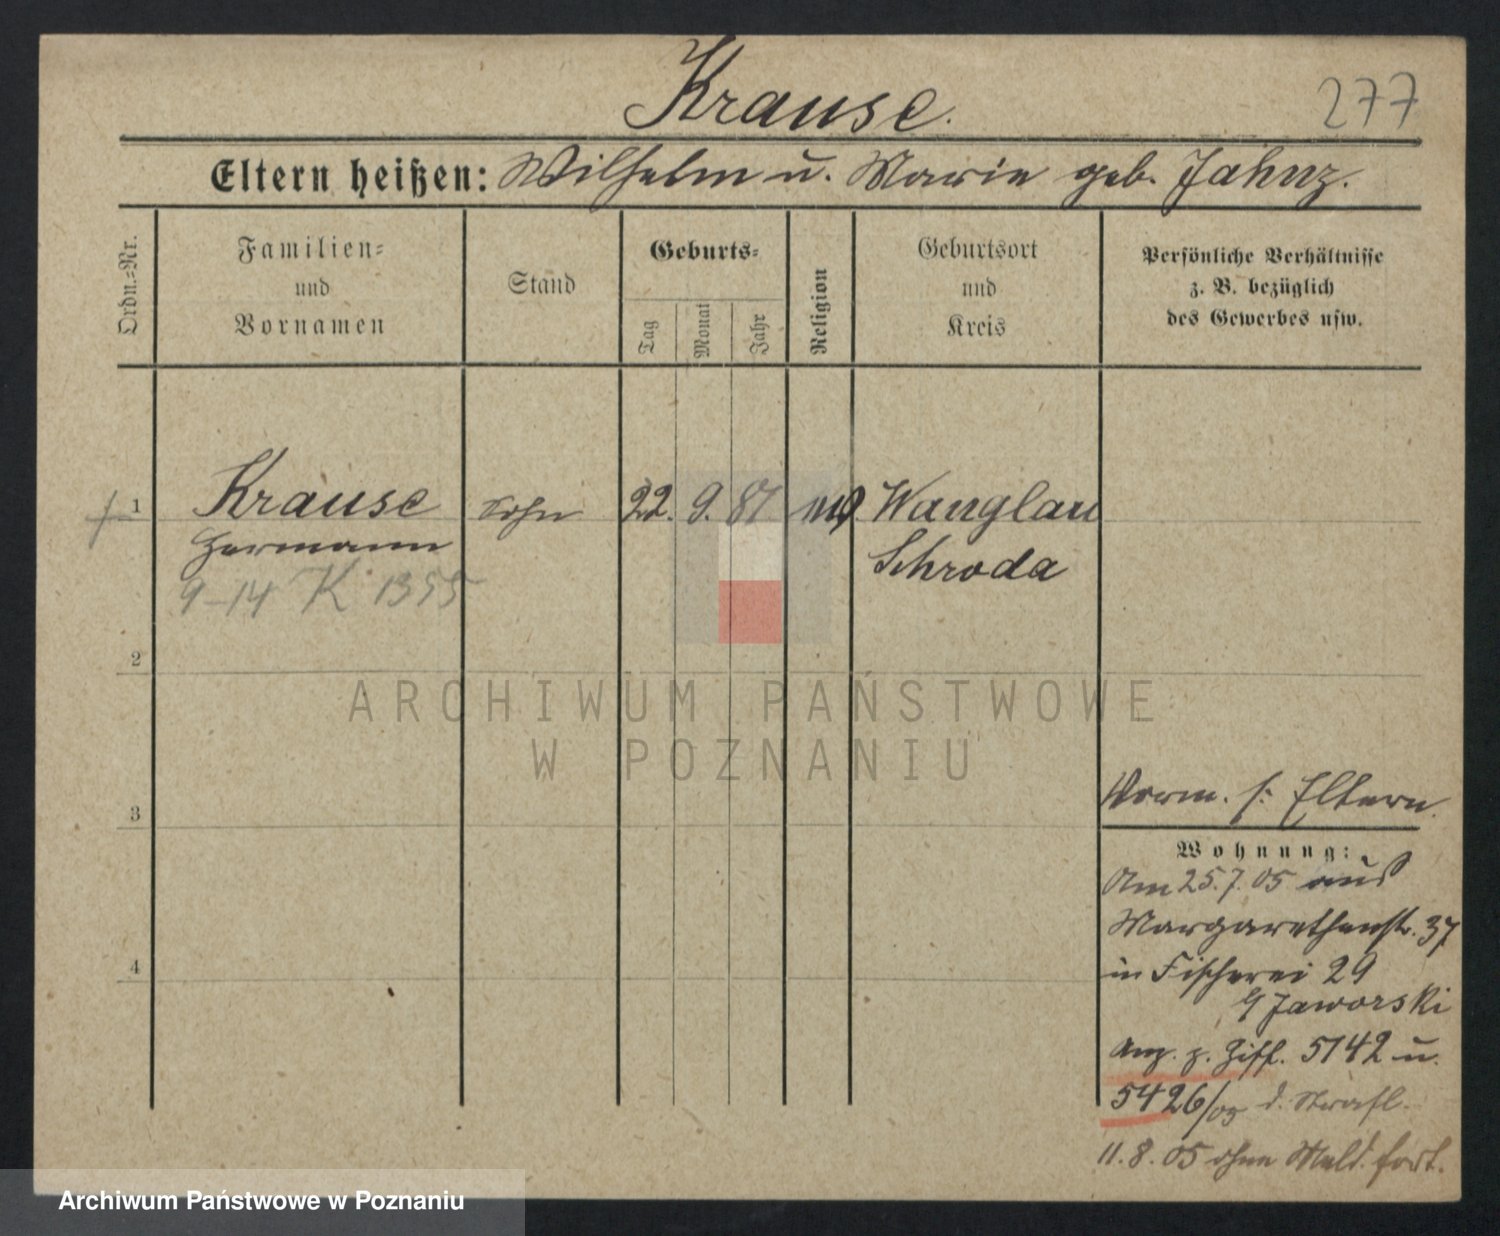 Krause.
277
Eltern heißen: Wilhelm u. Marie geb. Jahnz.
Ordn.-Nr.
Familien-
und
Vornamen
Stand
Geburts-
Tag
Monat
Jahr
Religion
Geburtsort
und
Kreis
Persönliche Verhältnisse
z. B. bezüglich
des Gewerbes usw.
1
Krause
Hermann
9-14 K 1355
Sohn
22. 9. 87
Wanglau
Schroda
2
3
4
ARCHIWUM PAŃSTWOWE
W POZNANIU
Vorm. s. Eltern.
Wohnung:
Am 25.7.05 aus
Margarethenstr. 37
in Fischerei 29
Jaworski
Anz. z. Ziff. 5142 u.
5426/03 d. Strafl.
11.8.05 ohne Meld. fort.
Archiwum Państwowe w Poznaniu